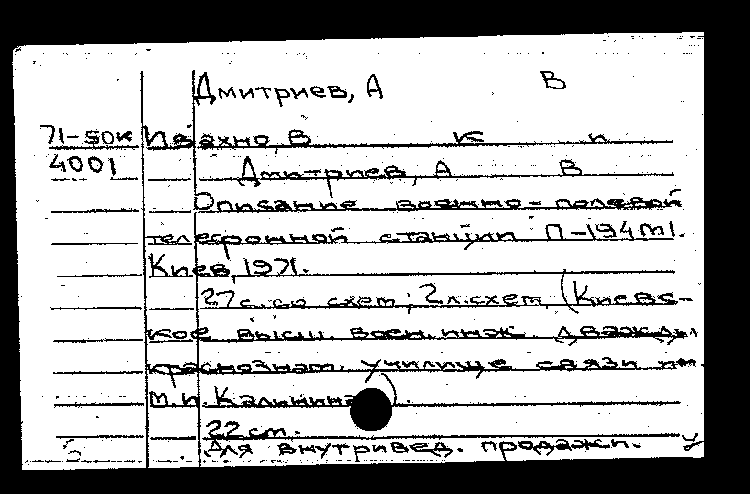 Дмитриев, А В
71-50к Ивахно, В К и
4001 Дмитриев, А В
Описание военно-полевой
телефонной станции П-194М1.
Киев, 1971.
27с. со схем; 2л.схем. (Киевс-
кое высш. воен. инж. дважды
краснознам. училище связи им.
М.И. Калинина).
22 см.
Для внутривед. продажи. У